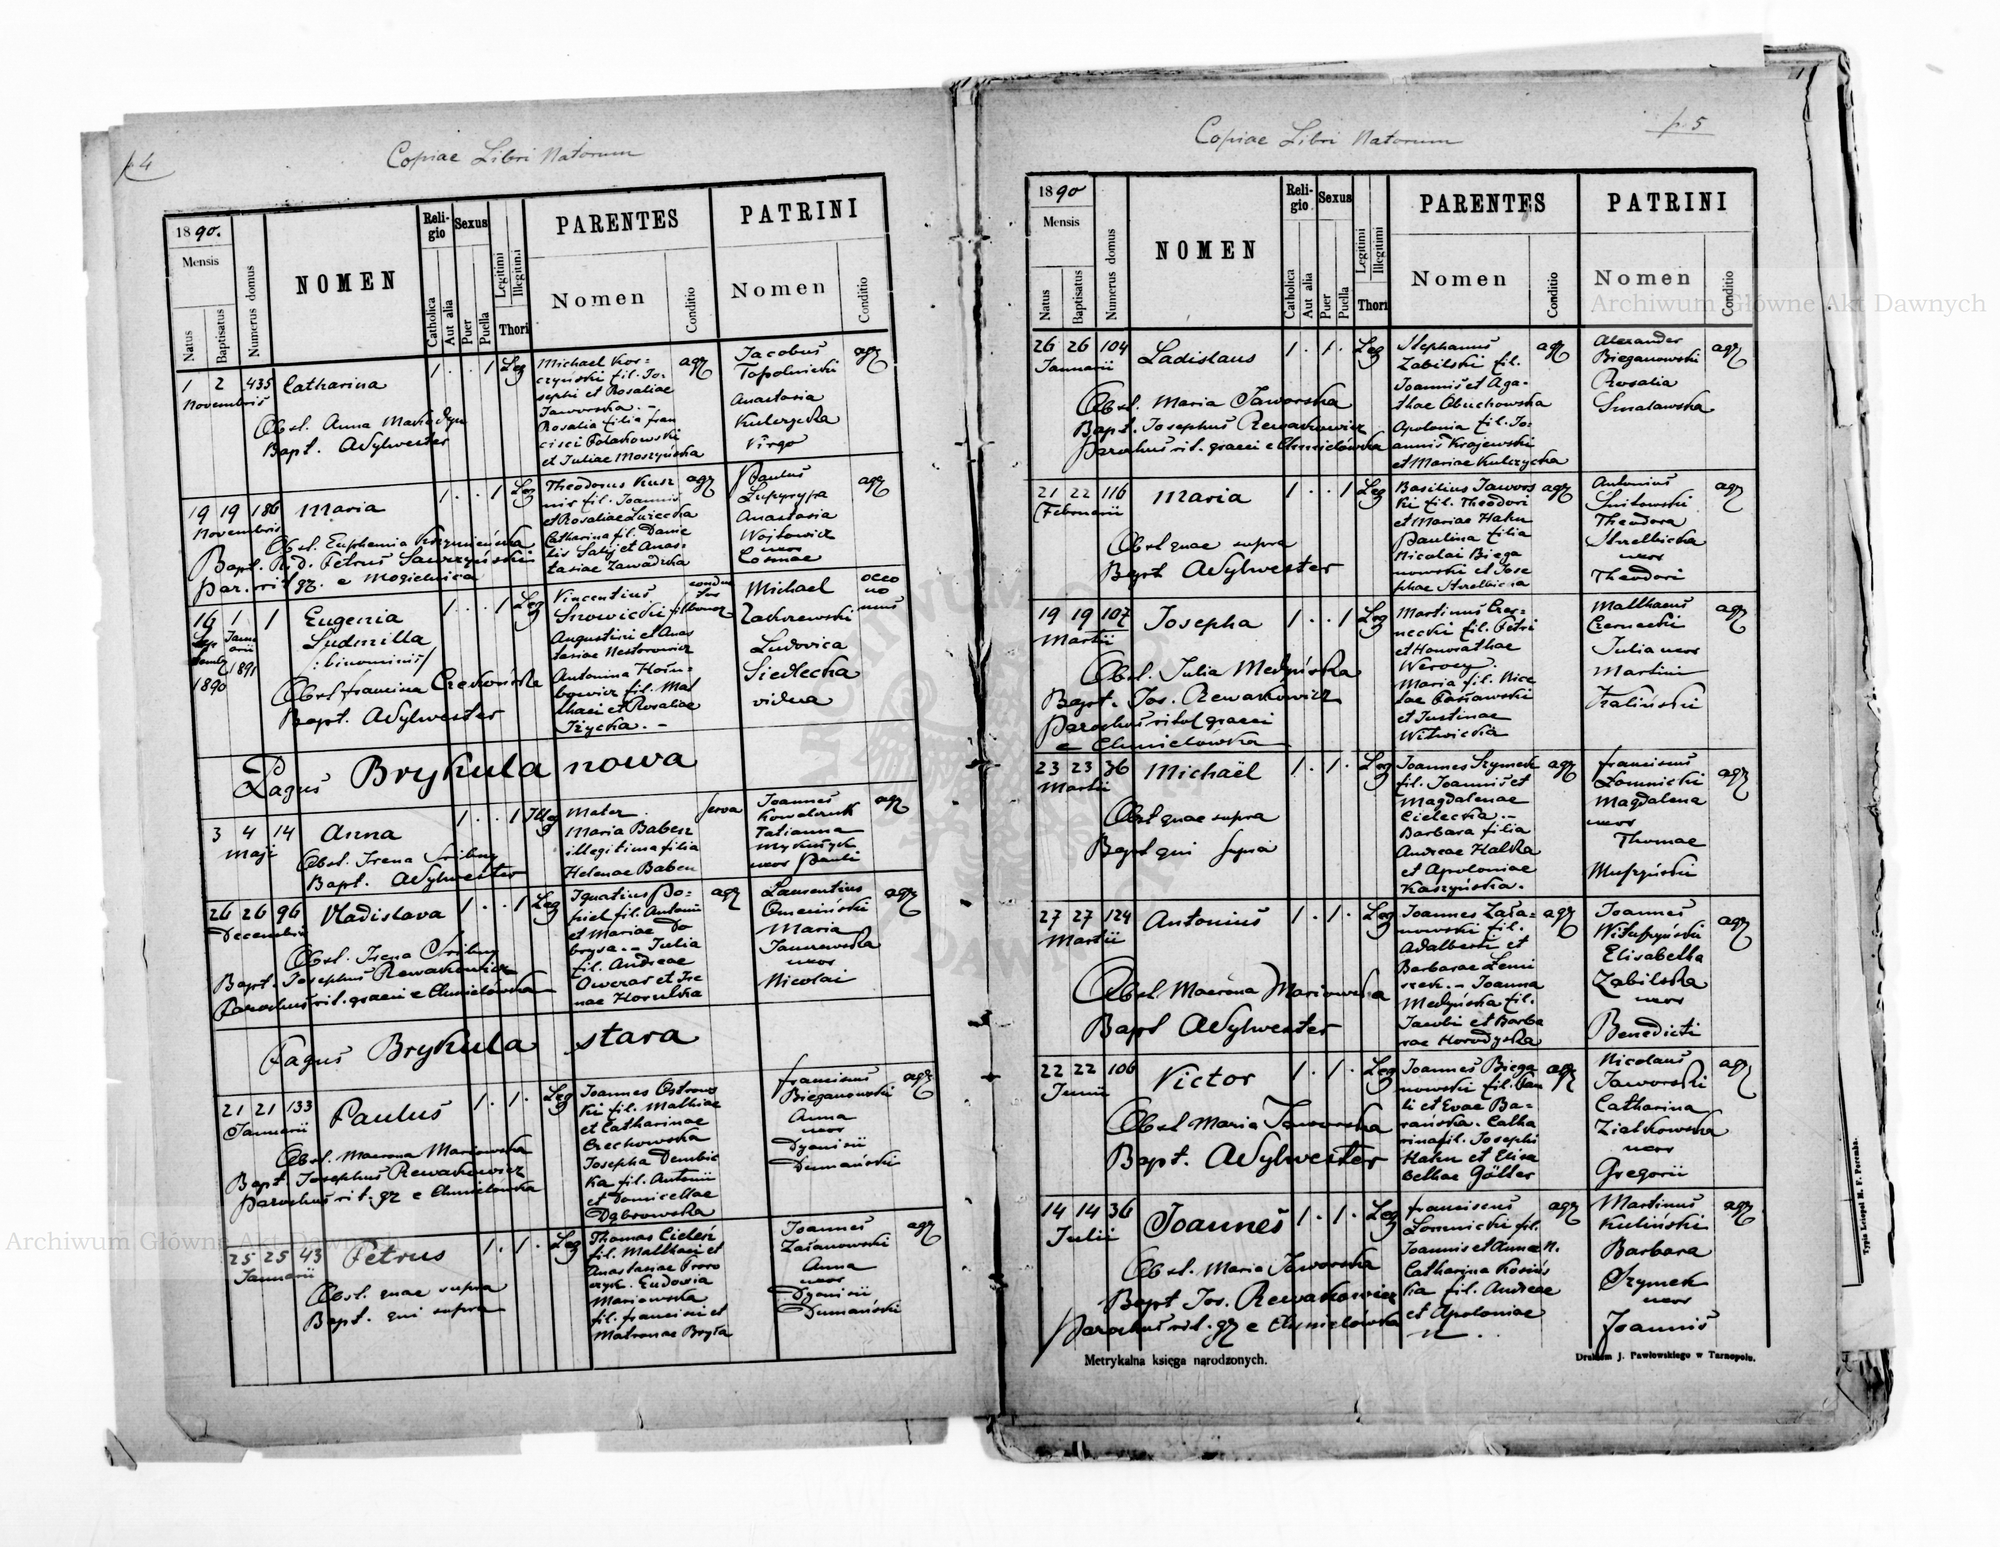 p. 4
Copiae Libri Natorum
1890.
Mensis
Natus
Baptisatus
Numerus domus
NOMEN
Religio
Catholica
Aut alia
Sexus
Puer
Puella
Legitimi
Illegitimi
Thori
PARENTES
Nomen
Conditio
PATRINI
Nomen
Conditio
1 2 435 Catharina 1 . . 1 Leg
Novembris
Obst. Anna
Bapt. A Sylwester
Michael Kor=
czyński fil. Jo-
sephi et Rosaliae
Jaworska. -
Rosalia filia Fran
cisci Polakowski
et Juliae Moszyńska
agr
Jacobus
Topolnicki
Anastasia
Kulczycka
Virgo
agr
19 19 186 Maria 1 . . 1 Leg
Novembris
Obst. Euphemia
Bapt. R.D. Petrus
par. rit. gr. e Mogielnica
Theodorus
fil. Joannis
et Rosaliae
Catharina fil. Danie
lis et Anas=
tasiae Zawadzka
agr
Paulus
Anastasia
Wojtowicz
uxor
Cosmae
agr
16 1 1 Eugenia 1 . . 1 Leg
Ludmilla
: binominis/
1891
1890
Obst Francisca
Bapt. A Sylwester
Vincentius
Augustini et Anas
tasiae Nestorowicz
Antonina
fil. Mat
thaei et Rosaliae
Iżycka. -
Michael
Zakrzewski
Ludovica
Siedlecka
vidua
oeco
no
mus
Pagus Brykula nowa
3 4 14 Anna 1 . . 1 Illeg
Maji
Obst. Irena
Bapt. A Sylwester
Mater
Maria
illegitima filia
Helenae
serva
Joannes
Kowalczuk
Tatianna
uxor Pauli
agr
26 26 96 Vladislava 1 . . 1 Leg
Decembris
Obst. Irena
Bapt. Josephus Rewakowicz
Parochus rit. graeci e Chmielówka
Ignatius Po=
piel fil. Antonii
et Mariae Do
brysa. - Julia
fil. Andreae
et Ire
nae
agr
Laurentius
Maria
uxor
Nicolai
agr
Pagus Brykula stara
21 21 133 Paulus 1 . 1 . Leg
Januarii
Obst. Macrona Mariowska
Bapt. Josephus Rewakowicz
parochus rit. gr e Chmielówka
Joannes Ostrows
ki fil. Mathiae
et Catharinae
Czechowska
Josepha Dembic
ka fil. Antonii
et Domicellae
Dąbrowska
Franciscus
Bieganowski
Anna
uxor
Dyonisii
Dumański
agr
25 25 43 Petrus 1 . 1 . Leg
Januarii
Obst. quae supra
Bapt. qui supra
Thomas
fil. Matthaei et
Anastasiae
Eudoxia
Mariowska
fil. Francisci et
Matronae Bryła
Joannes
Zalanowski
Anna
uxor
Dyonisii
Dumański
agr
p. 5
Copiae Libri Natorum
1890
Mensis
Natus
Baptisatus
Numerus domus
NOMEN
Religio
Catholica
Aut alia
Sexus
Puer
Puella
Legitimi
Illegitimi
Thori
PARENTES
Nomen
Conditio
PATRINI
Nomen
Conditio
26 26 104 Ladislaus 1 . 1 . Leg
Januarii
Obst. Maria Jaworska
Bapt. Josephus Rewakowicz
Parochus rit. graeci e Chmielówka
Stephanus
Zabilski fil.
Joannis et Aga-
thae Obuchowska
Apolonia fil. Jo-
annis Krajewski
et Mariae Kulczycka
agr
Alexander
Bieganowski
Rosalia
Smalawska
agr
21 22 116 Maria 1 . . 1 Leg
Februarii
Obst quae supra
Bapt A Sylwester
Basilius Jawors
ki fil. Theodori
et Mariae Hahn
Paulina filia
Nicolai Biega
nowski et Jose
phae Strelbicka
agr
Antonius
Snitowski
Theodora
Strelbicka
uxor
Theodori
agr
19 19 107 Josepha 1 . . 1 Leg
Martii
Obst. Julia Medyńska
Bapt. Jos. Rewakowicz
Parochus ritus graeci
e Chmielówka
Martinus Czer-
necki fil. Petri
et Honorathae
Maria fil. Nico
lae
et Justinae
Witwicka
Matthaeus
Czernecki
Julia uxor
Martini
Kaliński
agr
23 23 36 Michaël 1 . 1 . Leg
Martii
Obst quae supra
Bapt qui supra
Joannes Szymek
fil. Joannis et
Magdalenae
Cielecka. -
Barbara filia
Andreae
et Apoloniae
Kaszyńska.
agr
Franciscus
Łomnicki
Magdalena
uxor
Thomae
agr
27 27 124 Antonius 1 . 1 . Leg
Martii
Obst. Macrona Mariowska
Bapt A Sylwester
Joannes Zala=
nowski fil.
Adalberti et
Barbarae
Joanna
Medyńska fil.
Jacobi et Barba
rae Horodyska
agr
Joannes
Elisabetha
Zabilska
uxor
Benedicti
agr
22 22 106 Victor 1 . 1 . Leg
Junii
Obst Maria Jaworska
Bapt. A Sylwester
Joannes Biega
nowski fil. Pau
li et Evae Ba=
rańska. Catha
rina fil. Josephi
Hahn et Elisa
bethae Göller
agr
Nicolaus
Jaworski
Catharina
Ziatkowska
uxor
Gregorii
agr
14 14 36 Joannes 1 . 1 . Leg
Julii
Obst. Maria Jaworska
Bapt Jos. Rewakowicz
Parochus rit. gr e Chmielówka
Franciscus
Łomnicki fil.
Joannis et Annae N.
Catharina
ka fil. Andreae
et Apoloniae
N.
agr
Martinus
Kuliński
Barbara
Szymek
uxor
Joannis
agr
Metrykalna księga narodzonych.
Drukiem J. Pawłowskiego w Tarnopolu.
Archiwum Główne Akt Dawnych
Archiwum Główne Akt Dawnych